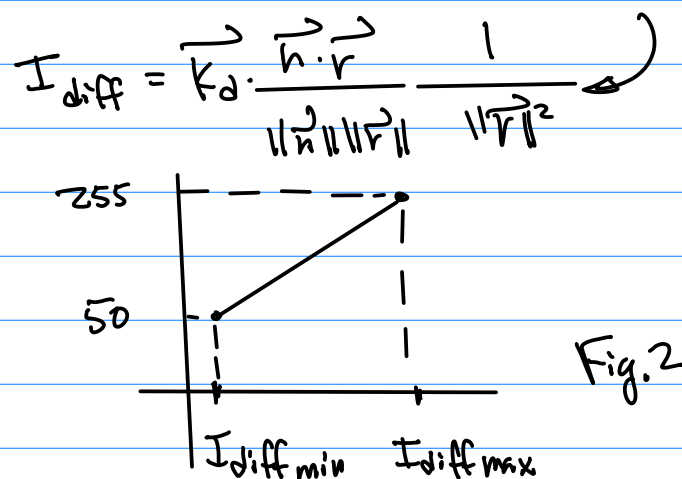 I diff = k⃗d · n⃗·r⃗ / ‖n⃗‖‖r⃗‖ 1 / ‖r⃗‖²
255
50
Fig.2
I diff min I diff max